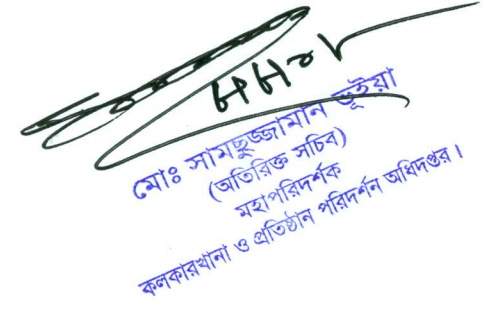 মোঃ সামছুজ্জামান ভূইয়া
(অতিরিক্ত সচিব)
মহাপরিদর্শক
কলকারখানা ও প্রতিষ্ঠান পরিদর্শন অধিদপ্তর।